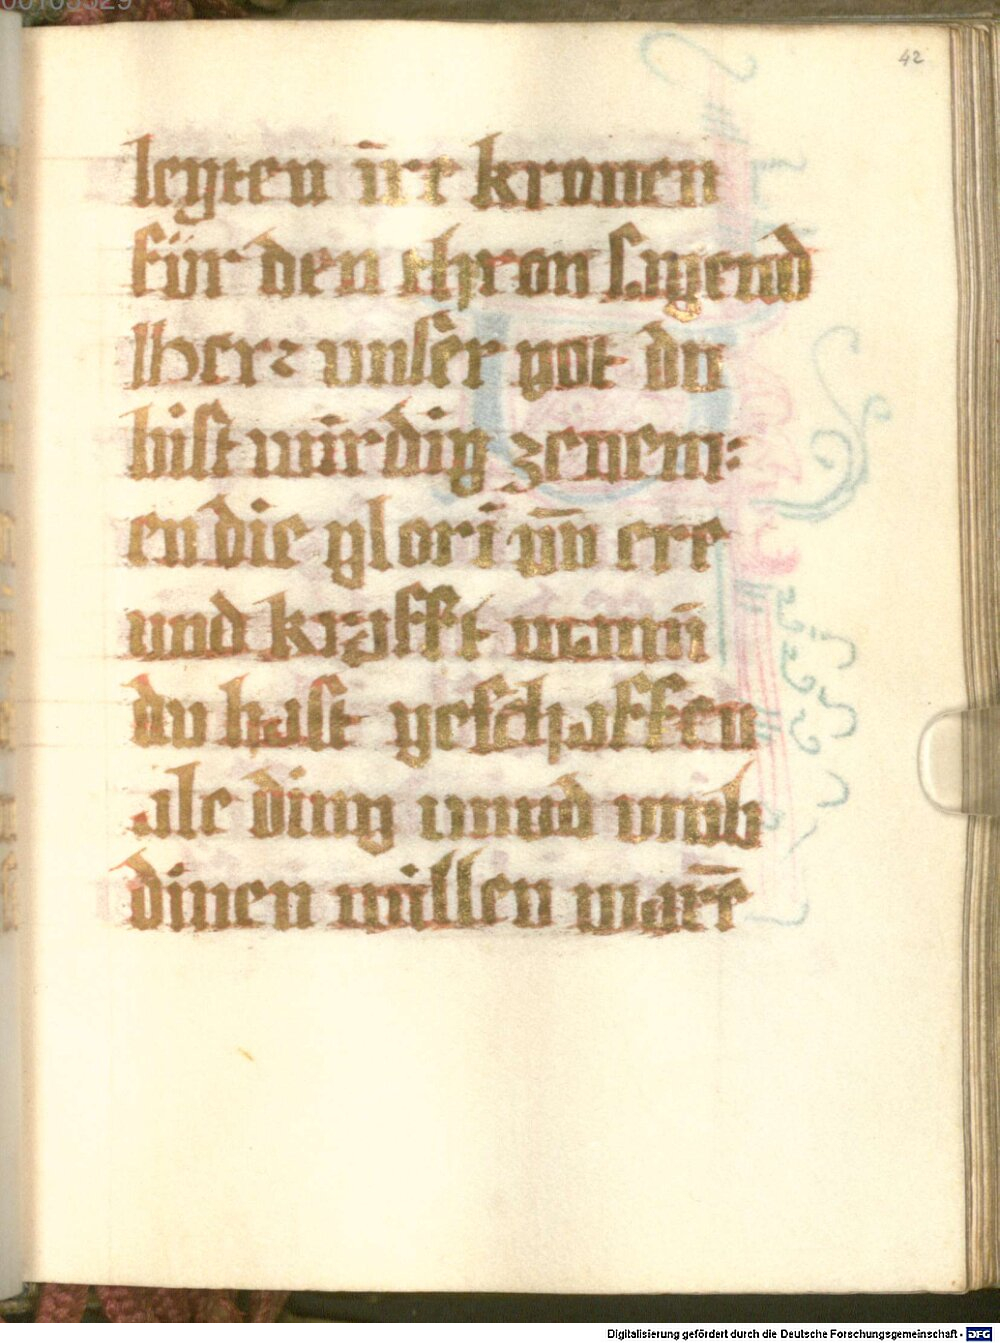 42
leyten ire kronen
für den thron sagend
Herr unser got du
bist wirdig zenem=
en die glori un̄ ere
und krafft wann̄
du hast geschaffen
ale ding unnd umb
dinen willen warē
Digitalisierung gefördert durch die Deutsche Forschungsgemeinschaft - DFG